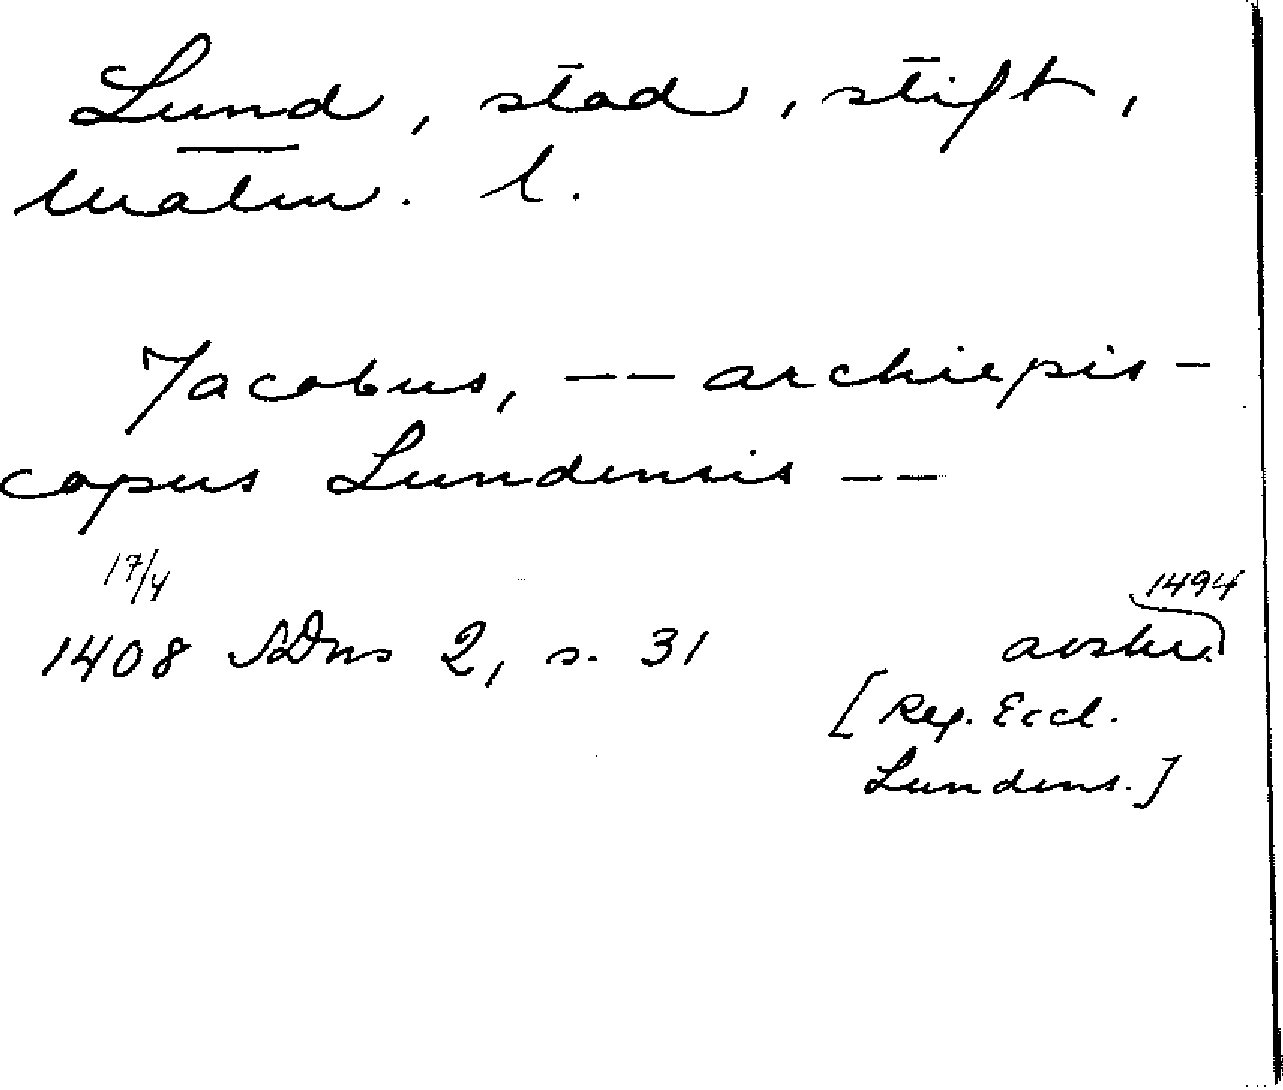 Lund, stad, stift,
Malm. l.
Jacobus, -- archiepis-
copus Lundensis --
17/4
1494
1408 SDns 2, s. 31 avskr.
[Reg. Eccl.
Lundens.]